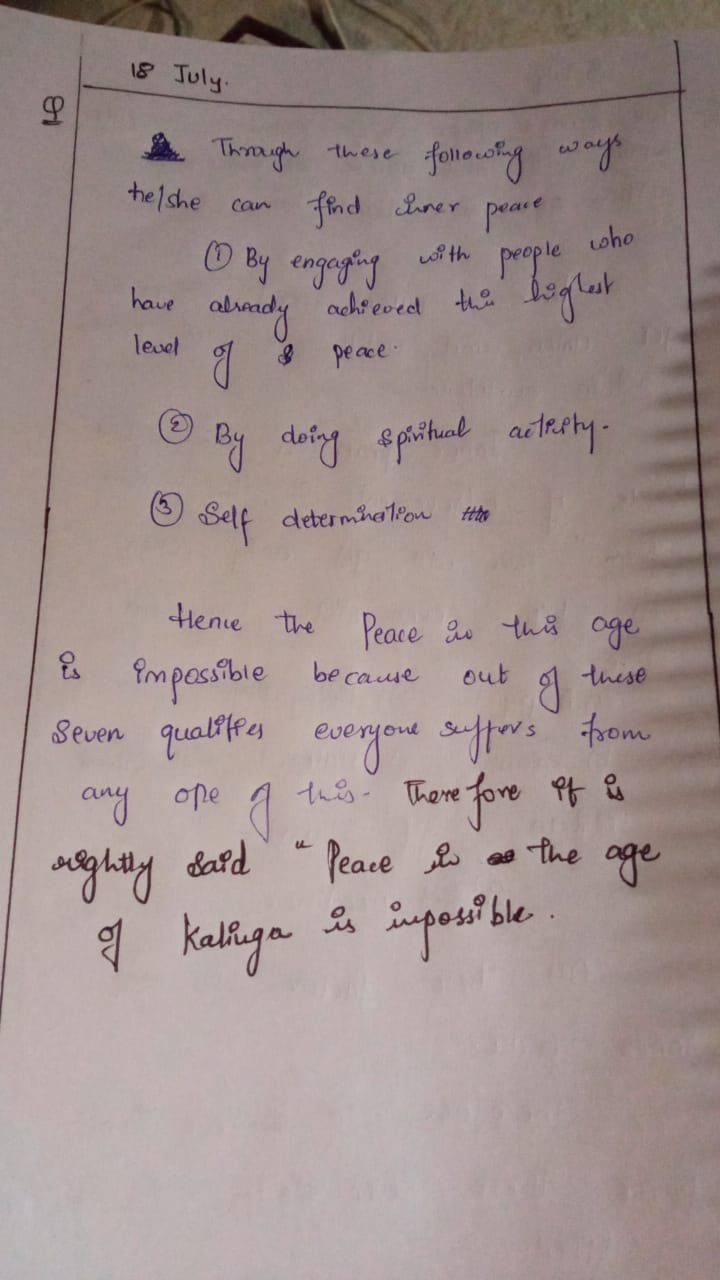 18 July.
Through these following ways
he/she can find inner peace
① By engaging with people who
have already achieved the highest
level of peace.
② By doing spiritual activity.
③ Self determination
Hence the Peace in this age
is impossible because out of these
seven qualities everyone suffers from
any one of this. Therefore it is
rightly said "Peace in the age
of Kaliuga is impossible.